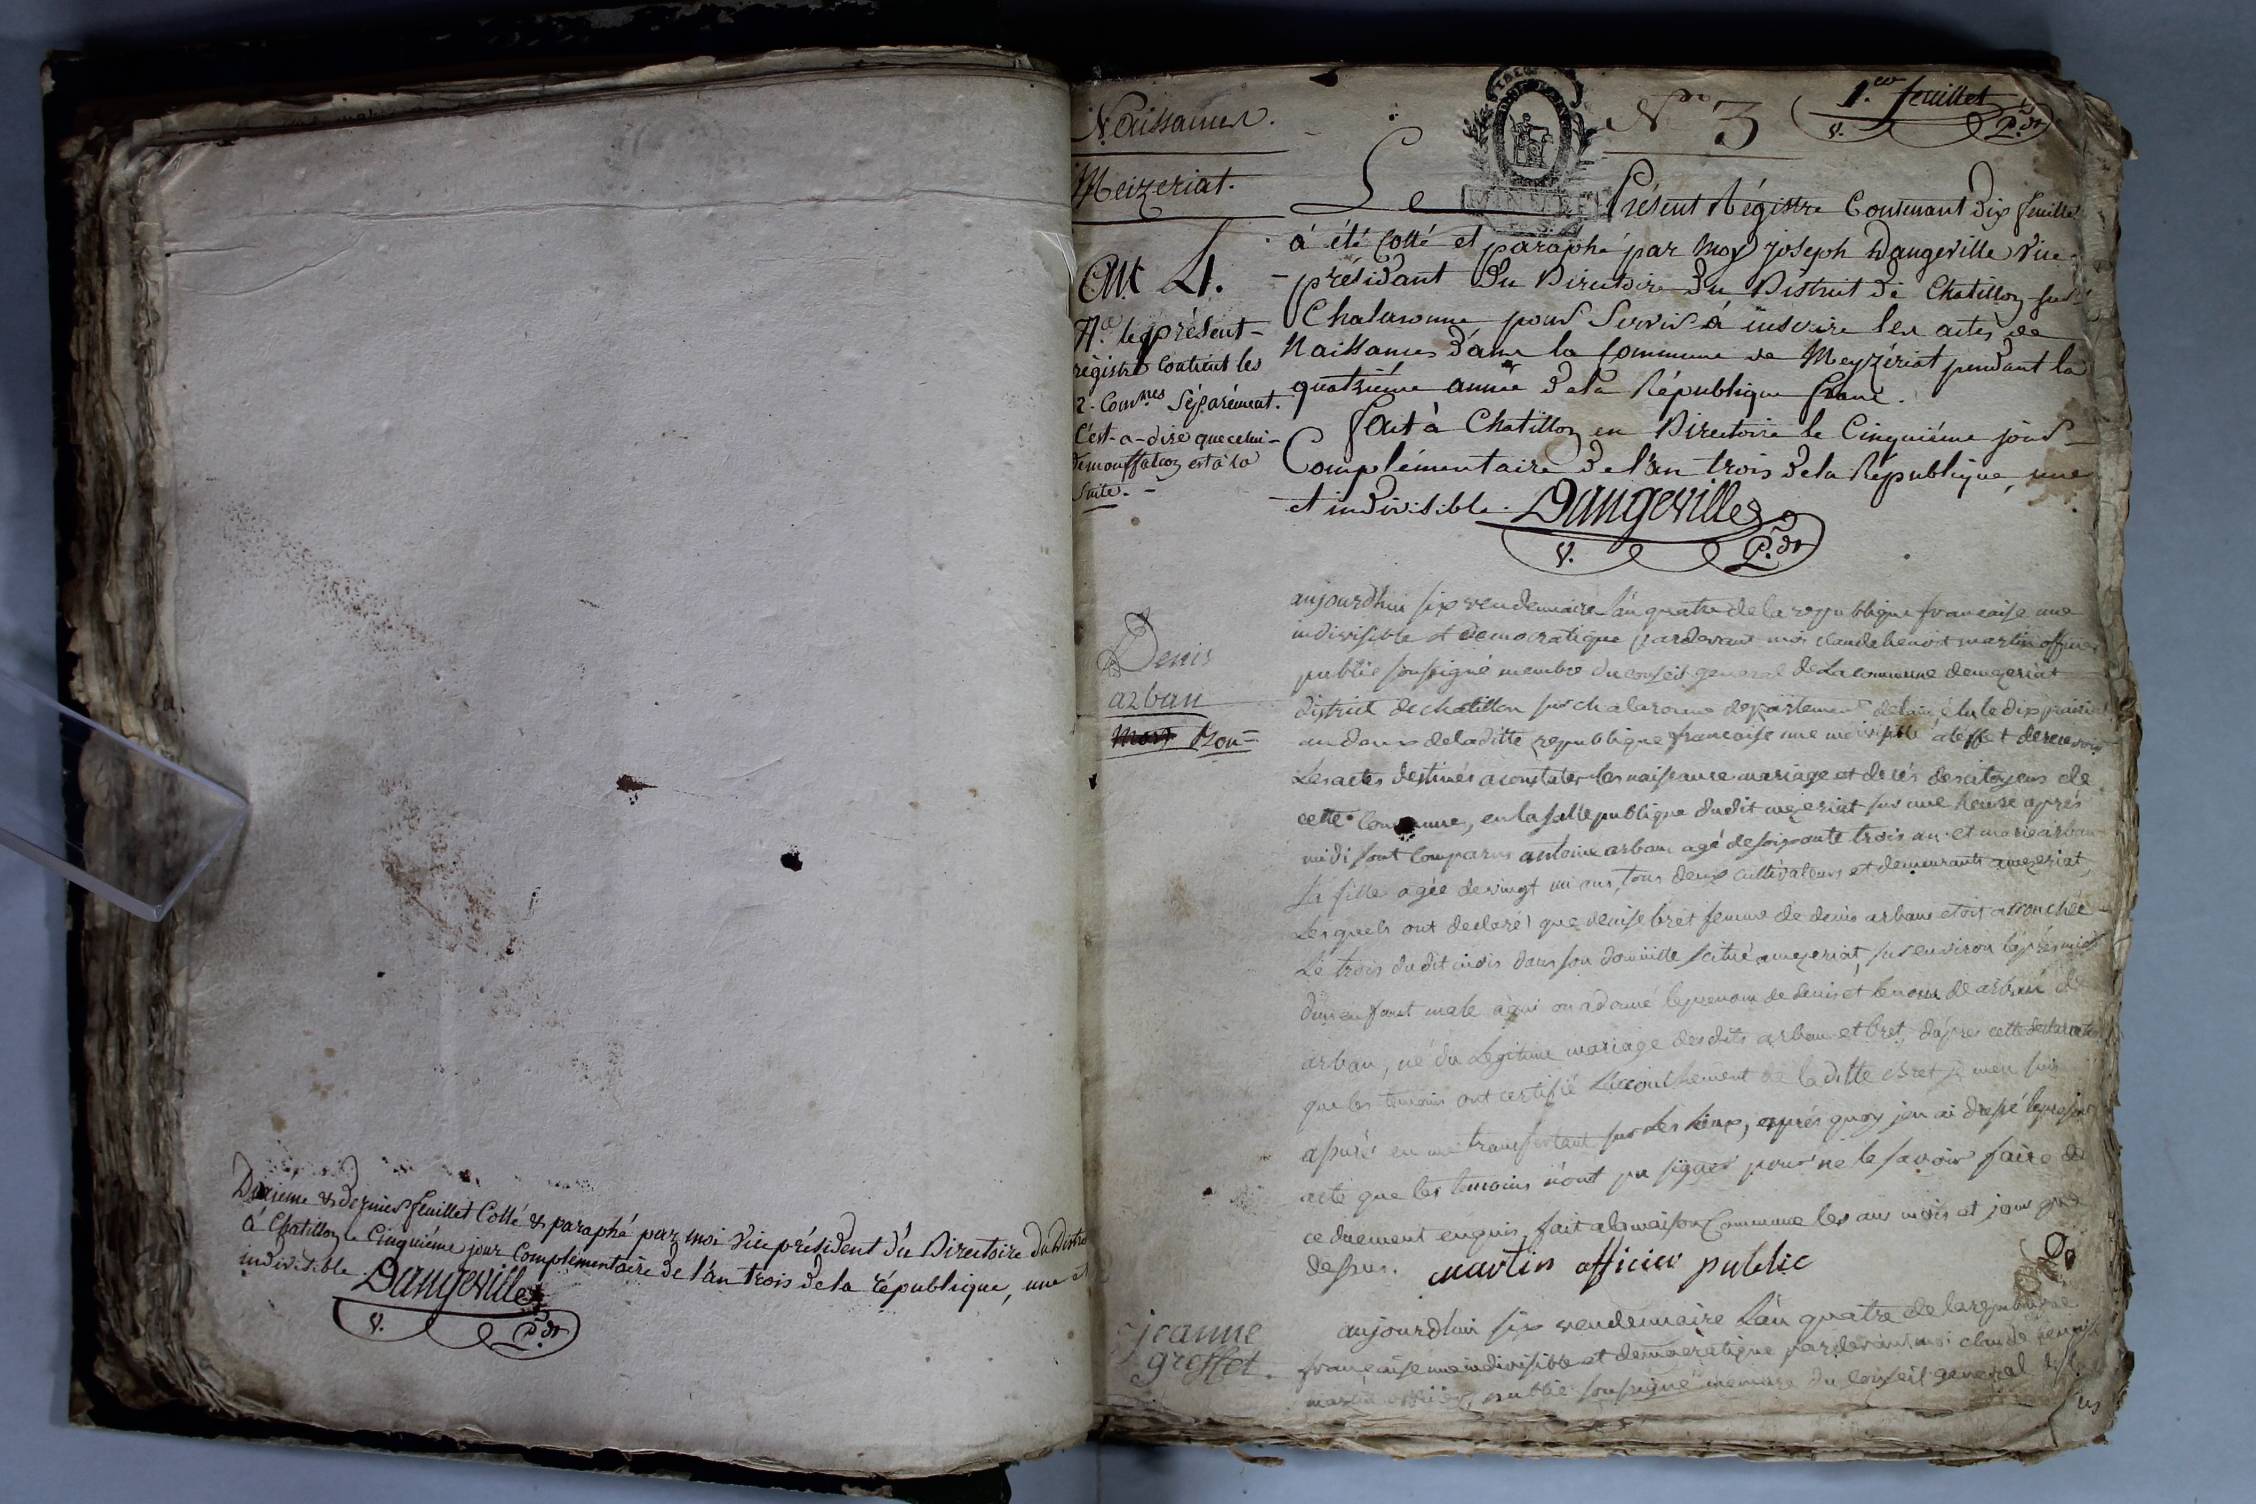 Dixième & dernier feuillet Cotté & paraphé par moi Vice président du Directoire du District
à Chatillon le Cinquième jour Complementaire de l'an trois de la république, une et
indivisible. Dangeville
V. P.dt
Naissances.
Meizeriat.
an 4.
Na. le présent
régistre Contient les
2. Comnes Séparément.
C'est-a-dire que celui
de mouffalcon est à la
Suite.
No 3
1.er feuillet
V. P.dt
Le Présent Régistre Contenant Dix feuillets
à été Cotté et paraphé par moy joseph Dangeville Vice
président Du Directoire Du District de Chatillon sur
Chalaronne pour Servir à inscrire les actes de
Naissances dans la Commune de Meyzériat pendant la
quatrième année de la République franc.
fait à Chatillon en Directoire le Cinquième jour
Complémentaire de l'an trois de la République, une
et indivisible. Dangeville
V. P.dt
Denis
arban
mort Non
aujourdhui six vendemiaire l'an quatre de la republique francaise une
indivisible et democratique pardevant moi claude benoit martin officier
public soussigné membre du conseil general de La commune de mezeriat
district de chatillon sur chalaronne departement de lain élu le dix prairial
an deux de laditte republique francaise une indivisible a leffet de recevoir
Les actes destinés a constater les naissance mariage et decés des citoyens de
cette Commune, en la salle publique dudit mezeriat sur une heure aprés
midi sont Comparus antoine arban agé de soixante trois an et marie arban
Sa fille agée de vingt un ans, tous deux cultivateurs et demeurants a mezeriat,
Lesquels ont declarés que denise bret femme de denis arban etoit accouchée
Le trois dudit mois dans son domicille scitué a mezeriat, sur environ laprès midi
dun enfant male à qui on a donné le prenom de denis et le nom de arban
arban, né du Legitime mariage desdits arban et bret, d'apres cette declaration
que les temoins ont certifié Laccouchement de laditte Bret je men suis
assuré en me transportant sur Les lieux, aprés quoy jen ai dressé le present
acte que les temoins n'ont pu signer pour ne le savoir faire de
ce duement enquis, fait a la maison Commune les an mois et jour que
dessus. martin officier public
jeanne
groffet.
aujourdhui six vendemiaire L'an quatre de la republique
francaise une indivisible et democratique pardevant moi claude benoit
martin officier public soussigné membre du conseil general de la